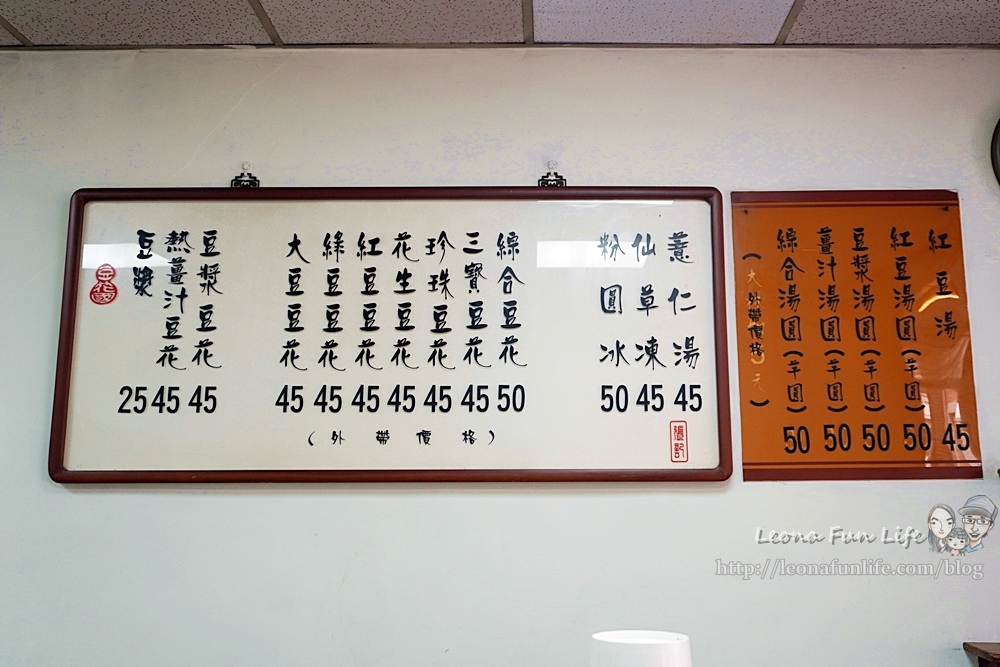 薏仁湯 45
仙草凍 45
粉圓冰 50
綜合豆花 50
三寶豆花 45
珍珠豆花 45
花生豆花 45
紅豆豆花 45
綠豆豆花 45
大豆豆花 45
豆漿豆花 45
熱薑汁豆花 45
豆漿 25
(外帶價格)
張記
紅豆湯 45
紅豆湯圓(芋圓) 50
豆漿湯圓(芋圓) 50
薑汁湯圓(芋圓) 50
綜合湯圓(芋圓) 50
Leona Fun Life
http://leonafunlife.com/blog